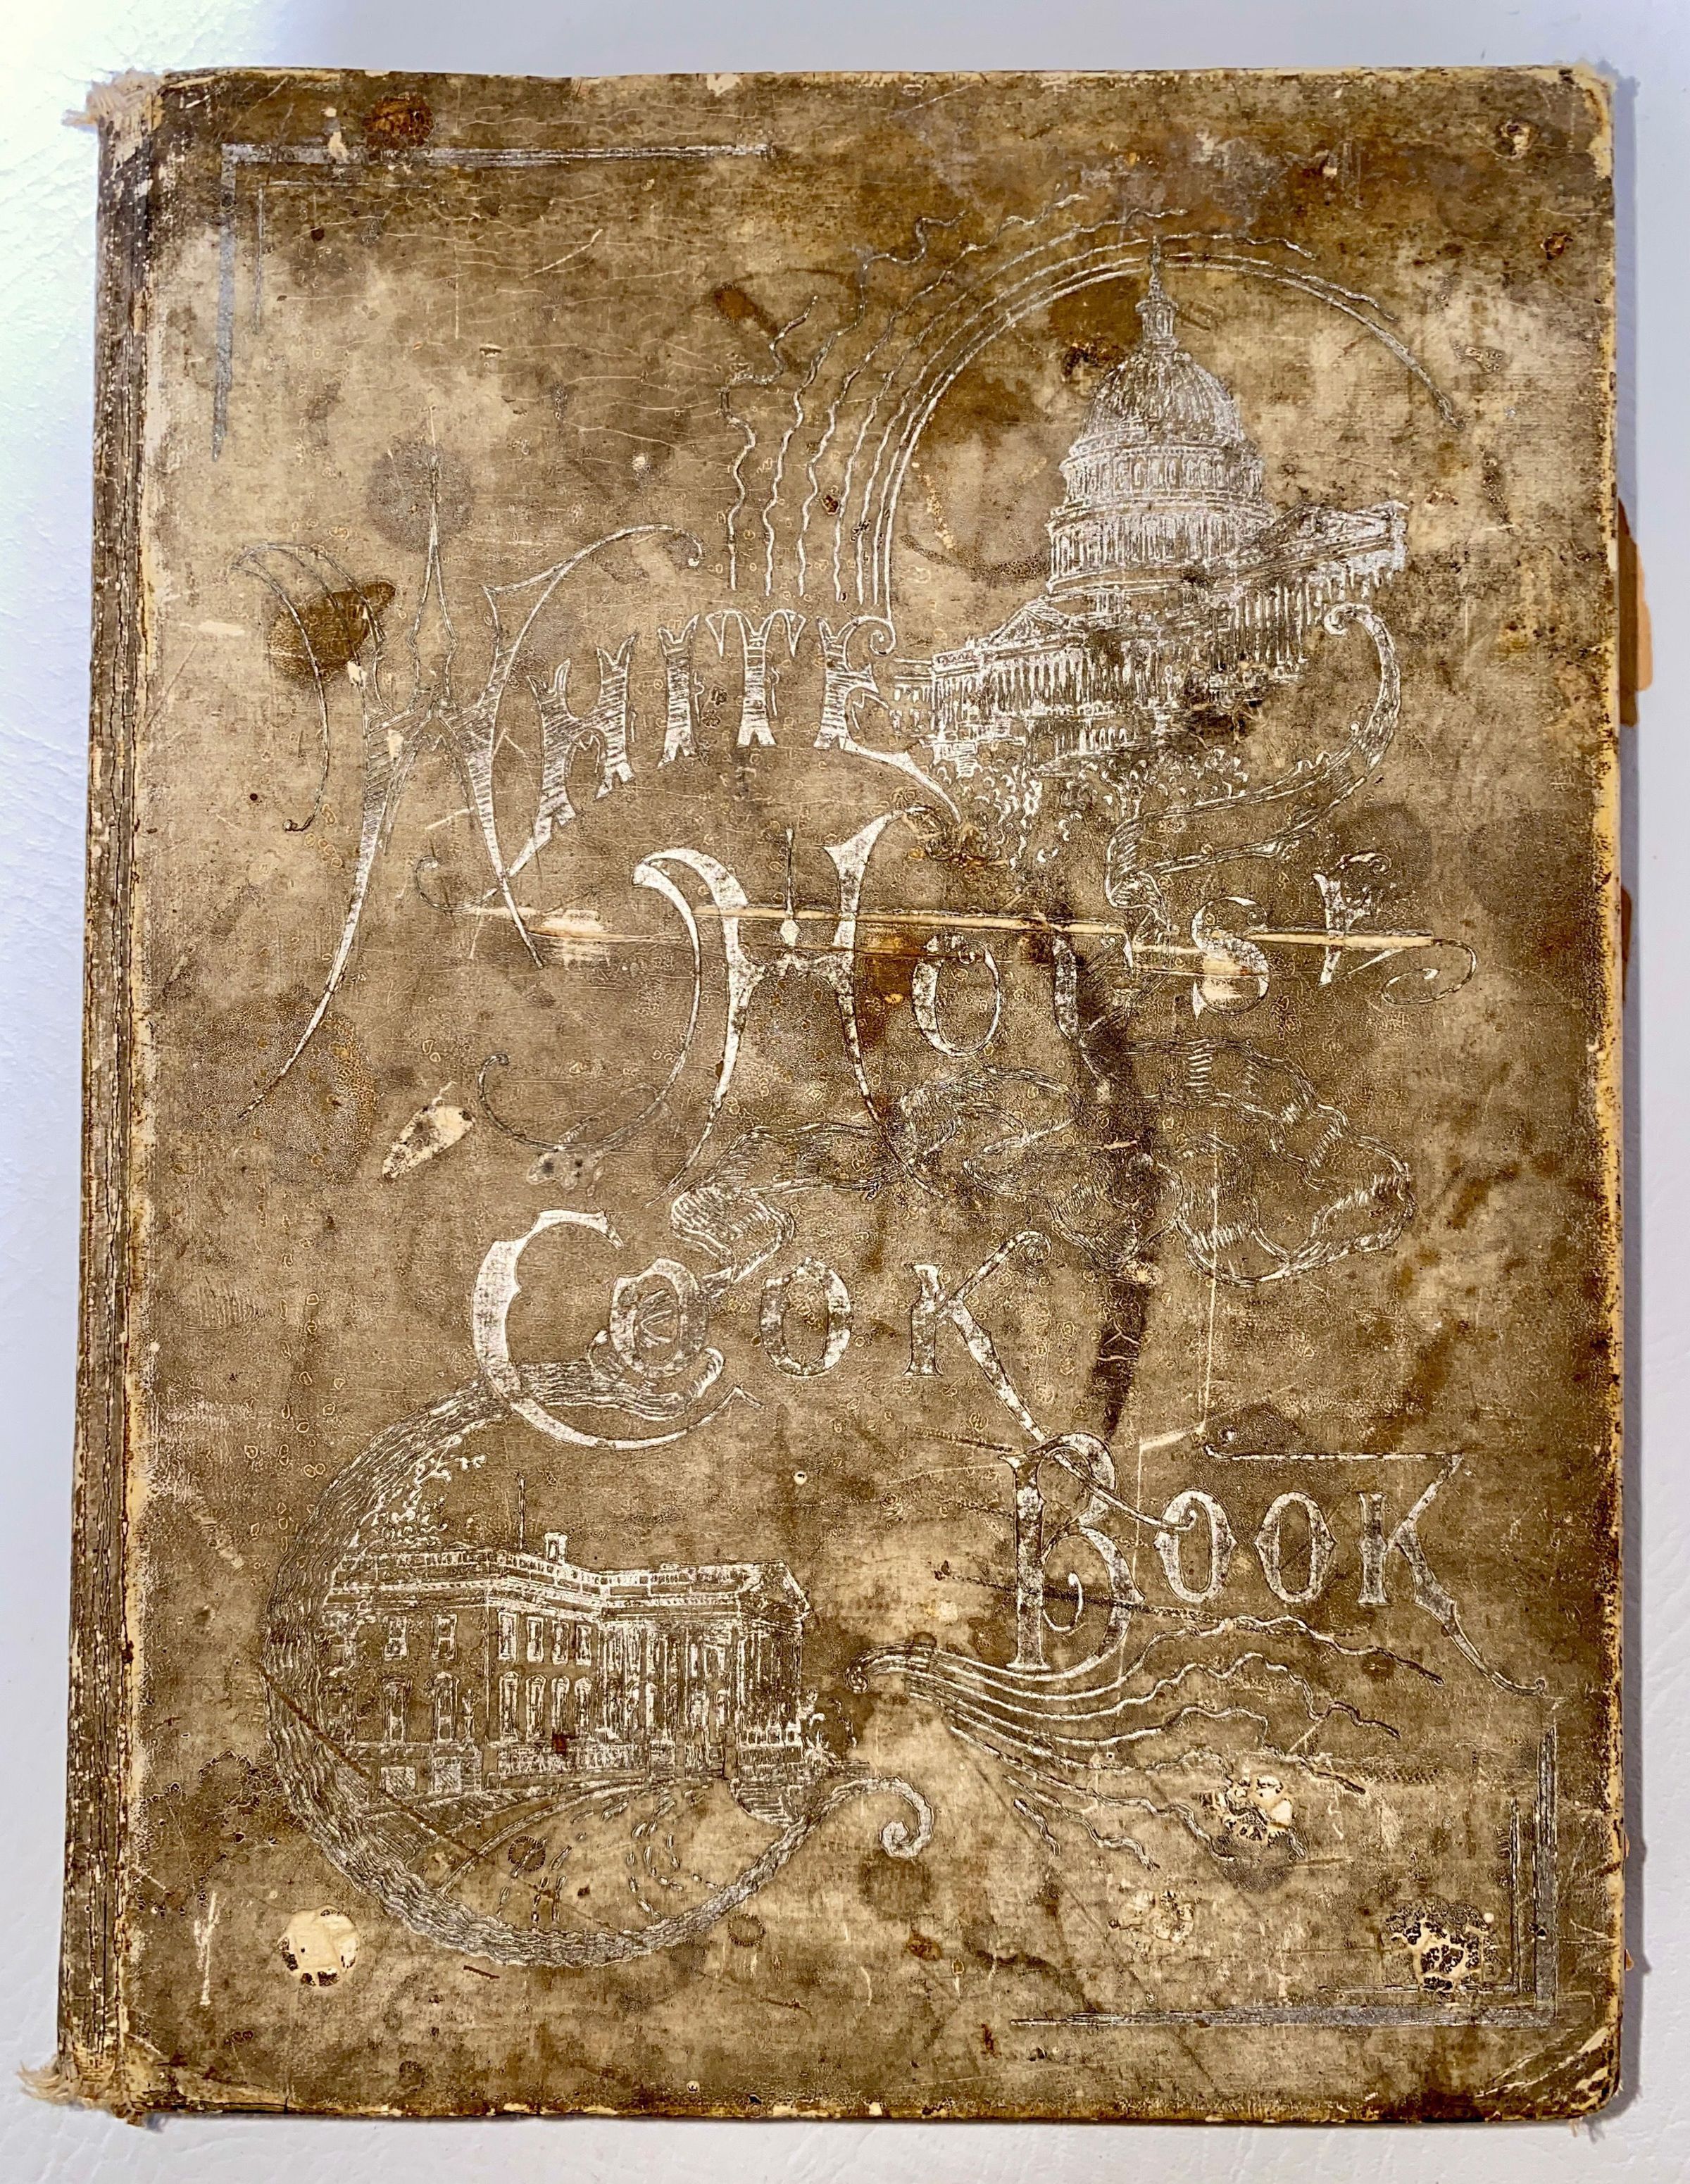 WHITE
HOUSE
COOK
BOOK